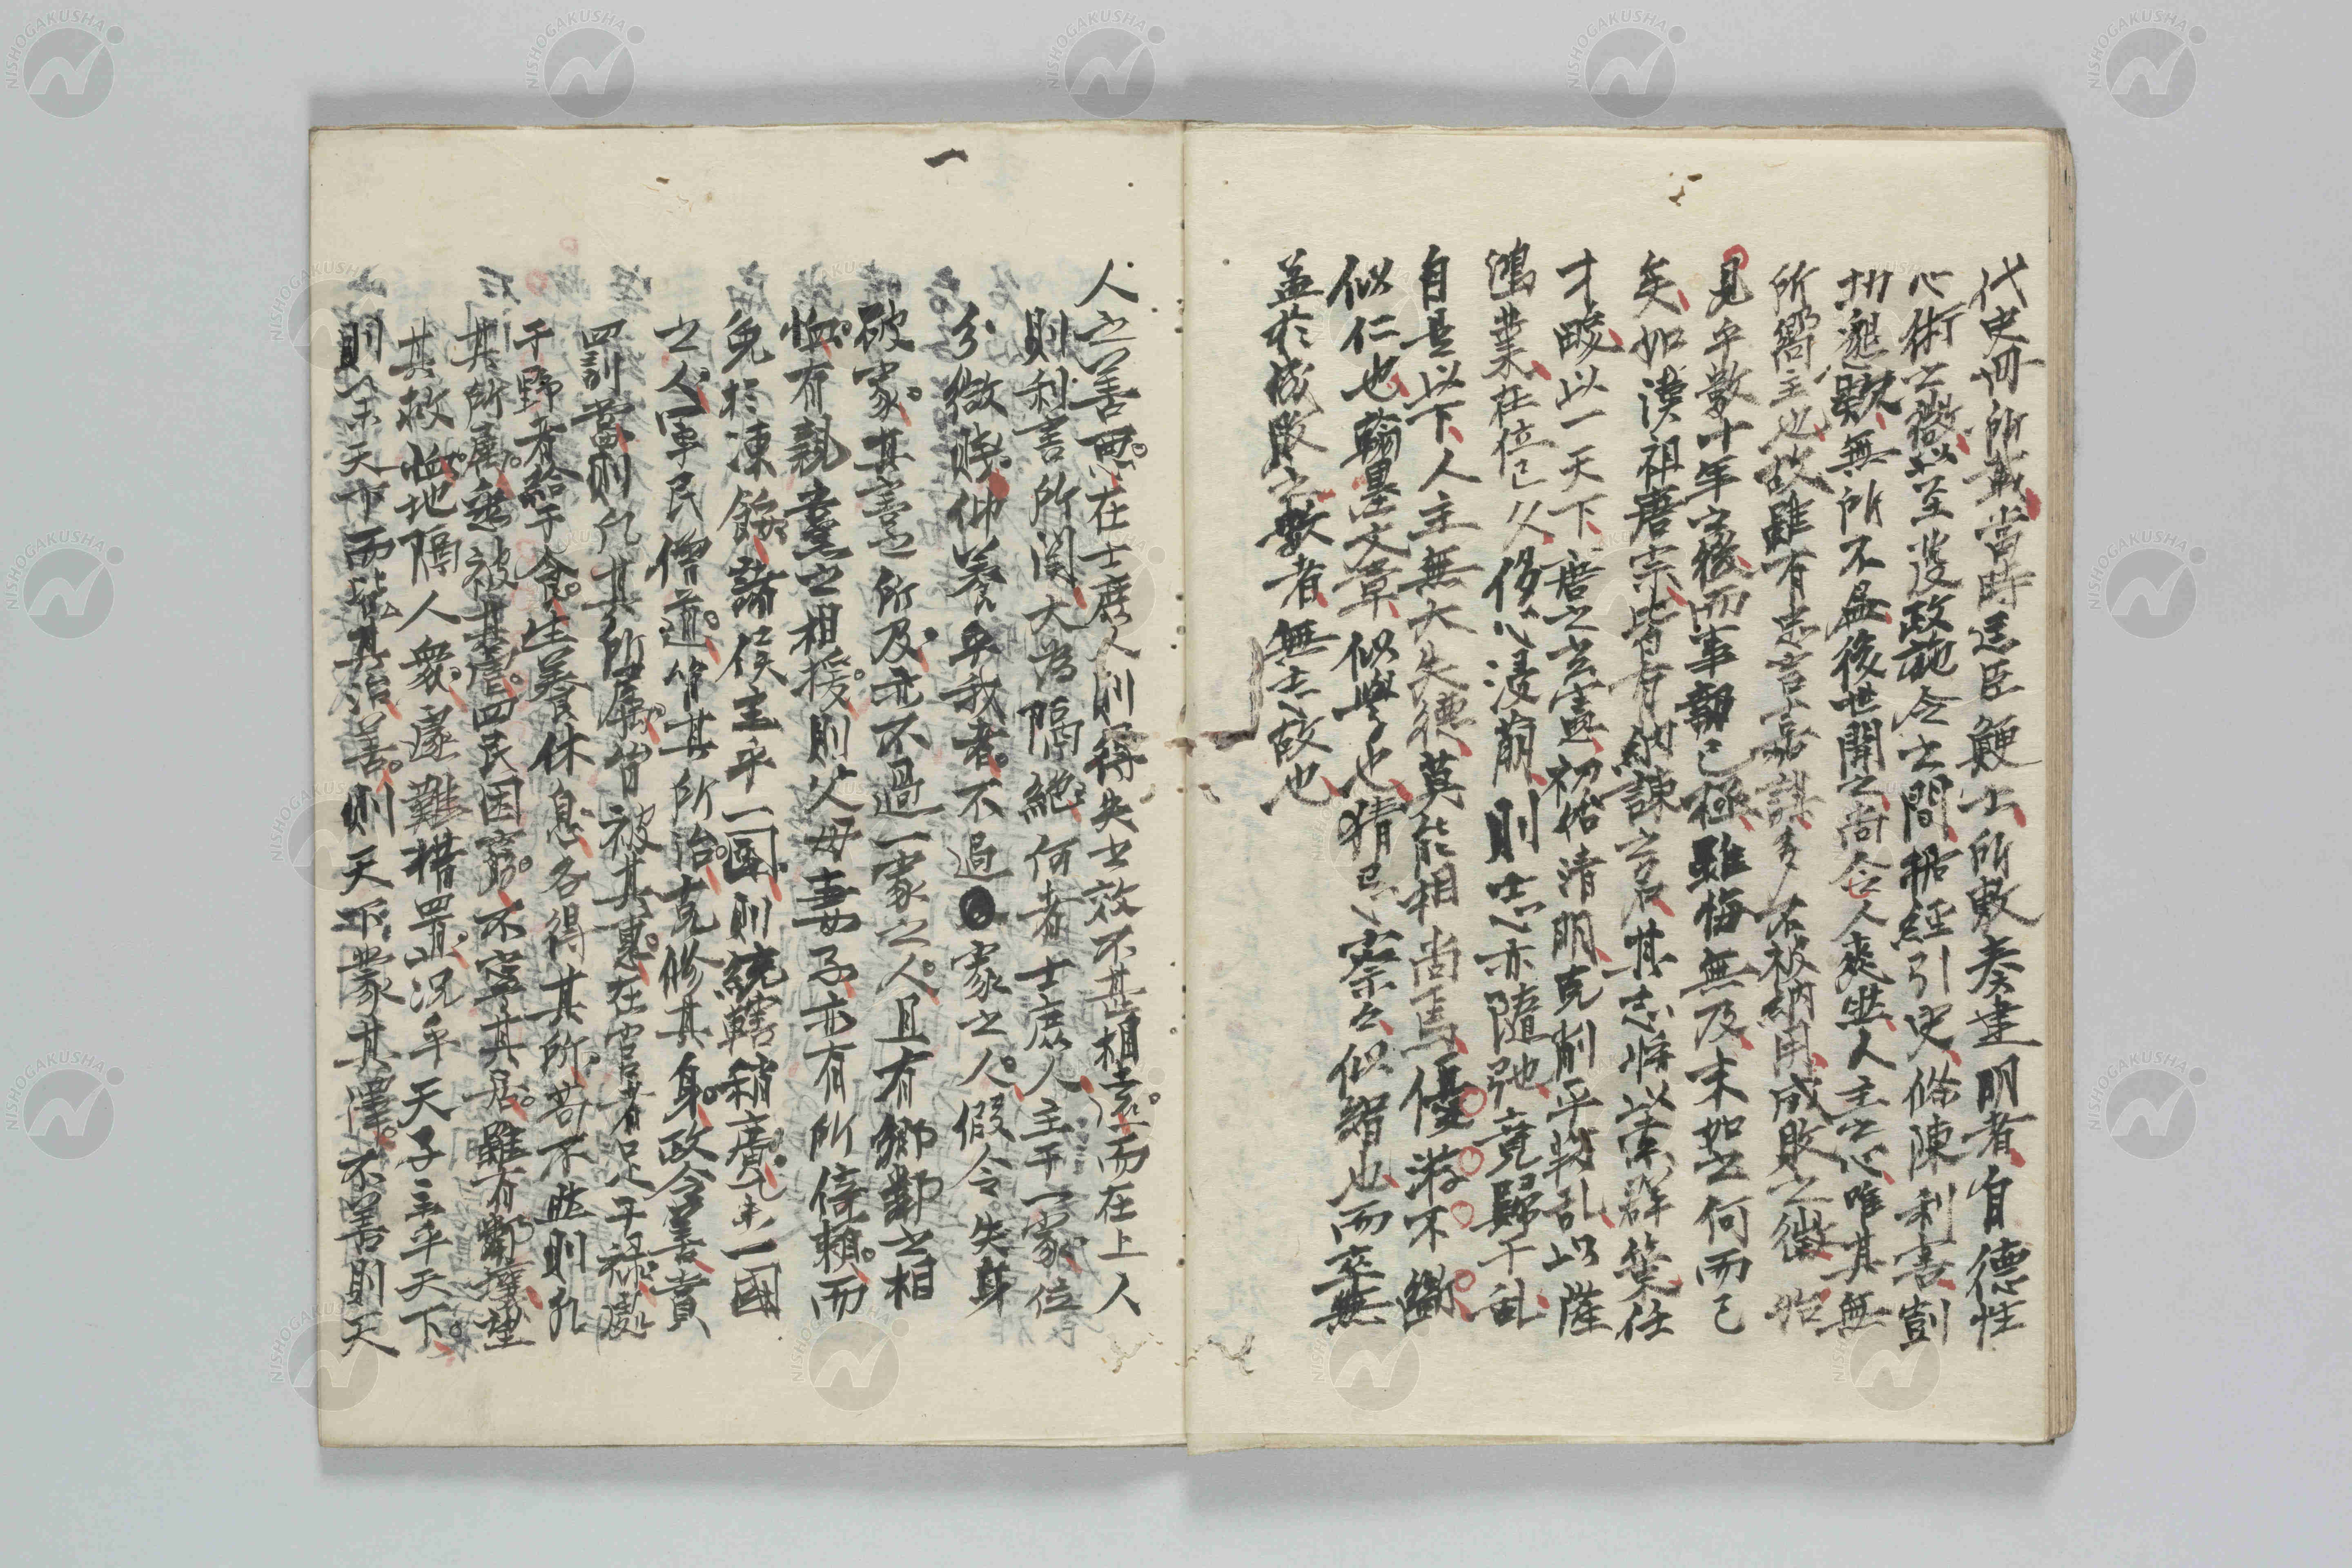 代史冊所載當時忠臣鯁士所敷奏建明者自德性
心術之微以至發政施令之間据經引史條陳利害剴
切懇欵無所不盡後世聞之尚令人爽然人主之心唯其無
所嚮主也故雖有忠言嘉謀多不被納用成敗之徵始
見乎數十年之後而事勢已極雖悔無及末如之何而已
矣如漢祖唐宗皆有納諫之名其志將以策群策任
才畯以一天下唐之玄憲初始清明克削平判乱以薩
鴻業在位已久侈心浸萠則志亦隨弛竟歸于乱
自是以下人主無大失德莫能相尚焉優游不斷
似仁也翰墨文章似學也猜忌察〻似智也而卒無
益於成敗之數者無志故也
一
人之善惡在士庶人則得失之效不甚相遠而在上人
則利害所関大為隔絶何者士庶人主于一家位
分微賤仰養乎我者不過家之人假令失身
破家其害之所及亦不過一家之人且有鄉鄰之相
恤有親戚之相援則父母妻子亦有所倚賴而
免於凍餒諸侯主乎一國則統轄稍廣凡一國
之人軍民僧道皆其所治克修其身政令善賞
罰當則凡其所屬皆被其惠在官者足于禄處
于野者給于食生養休息各得其所若不然則凡
其所屬迯被其虐四民困窮不寧其居雖有
其救恤地隔人衆遽難措置况乎天子主乎天下
則合天下而皆其治善則天下蒙其澤不善則天
NISHOGAKUSHA